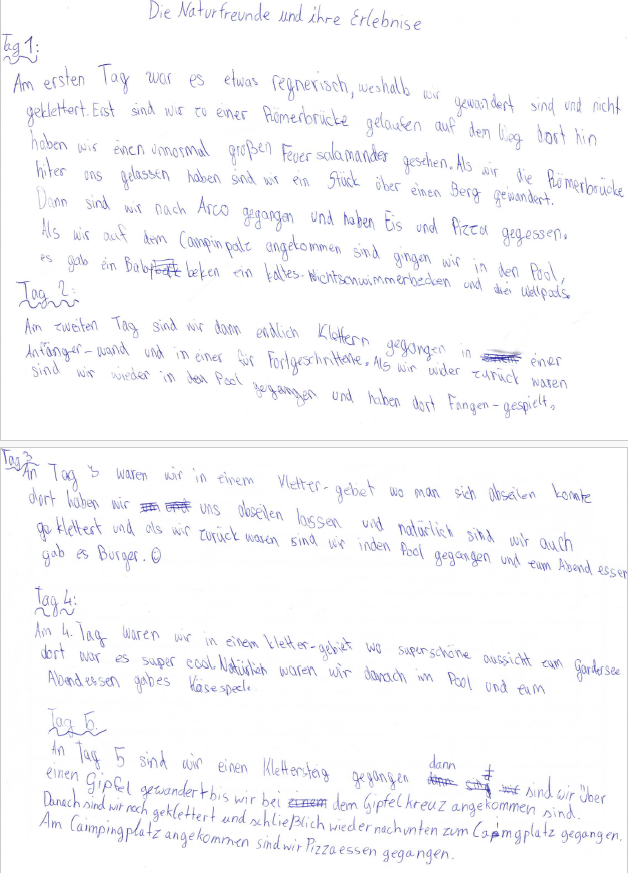 Die Naturfreunde und ihre Erlebnise
Tag 1:
Am ersten Tag war es etwas regnerisch, weshalb wir gewandert sind und nicht
geklettert. Erst sind wir zu einer Römerbrücke gelaufen auf dem Weg dort hin
haben wir einen unnormal großen Feuersalamander gesehen. Als wir die Römerbrücke
hiter uns gelassen haben sind wir ein Stück über einen Berg gewandert.
Dann sind wir nach Arco gegangen und haben Eis und Pizza gegessen.
Als wir auf dem Campinpalz angekommen sind gingen wir in den Pool,
es gab ein Baby beken ein kaltes Nichtschwimmerbecken und drei Wellpools.
Tag 2:
Am zweiten Tag sind wir dann endlich Klettern gegangen in einer
Anfänger-wand und in einer für Fortgeschrittene. Als wir wider zurück waren
sind wir wieder in den Pool gegangen und haben dort Fangen-gespielt.
Tag 3
An Tag 3 waren wir in einem Kletter-gebiet wo man sich abseilen konnte
dort haben wir uns abseilen lassen und natürlich sind wir auch
geklettert und als wir zurück waren sind wir inden Pool gegangen und zum Abend essen
gab es Burger. ☺
Tag 4:
Am 4. Tag waren wir in einem kletter-gebiet wo superschöne aussicht zum Gardersee
dort war es super cool. Natürlich waren wir danach im Pool und zum
Abendessen gabes Käsespeck.
Tag 5.
An Tag 5 sind wir einen Klettersteig gegangen dann sind wir über
einen Gipfel gewandert bis wir bei dem Gipfelkreuz angekommen sind.
Danach sind wir noch geklettert und schließlich wieder nach unten zum Capmgplatz gegangen.
Am Caimpingplatz angekommen sind wir Pizza essen gegangen.